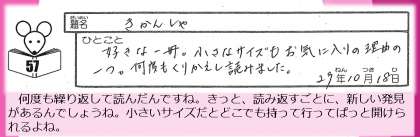 題名
だいめい
きかんしゃ
57
ひとこと
好きな一冊。小さなサイズもお気に入りの理由の
一つ。何度もくりかえし読みました。
29年10月18日
ねん がつ にち
何度も繰り返して読んだんですね。きっと、読み返すごとに、新しい発見
があるんでしょうね。小さいサイズだとどこでも持って行ってぱっと開けら
れるよね。